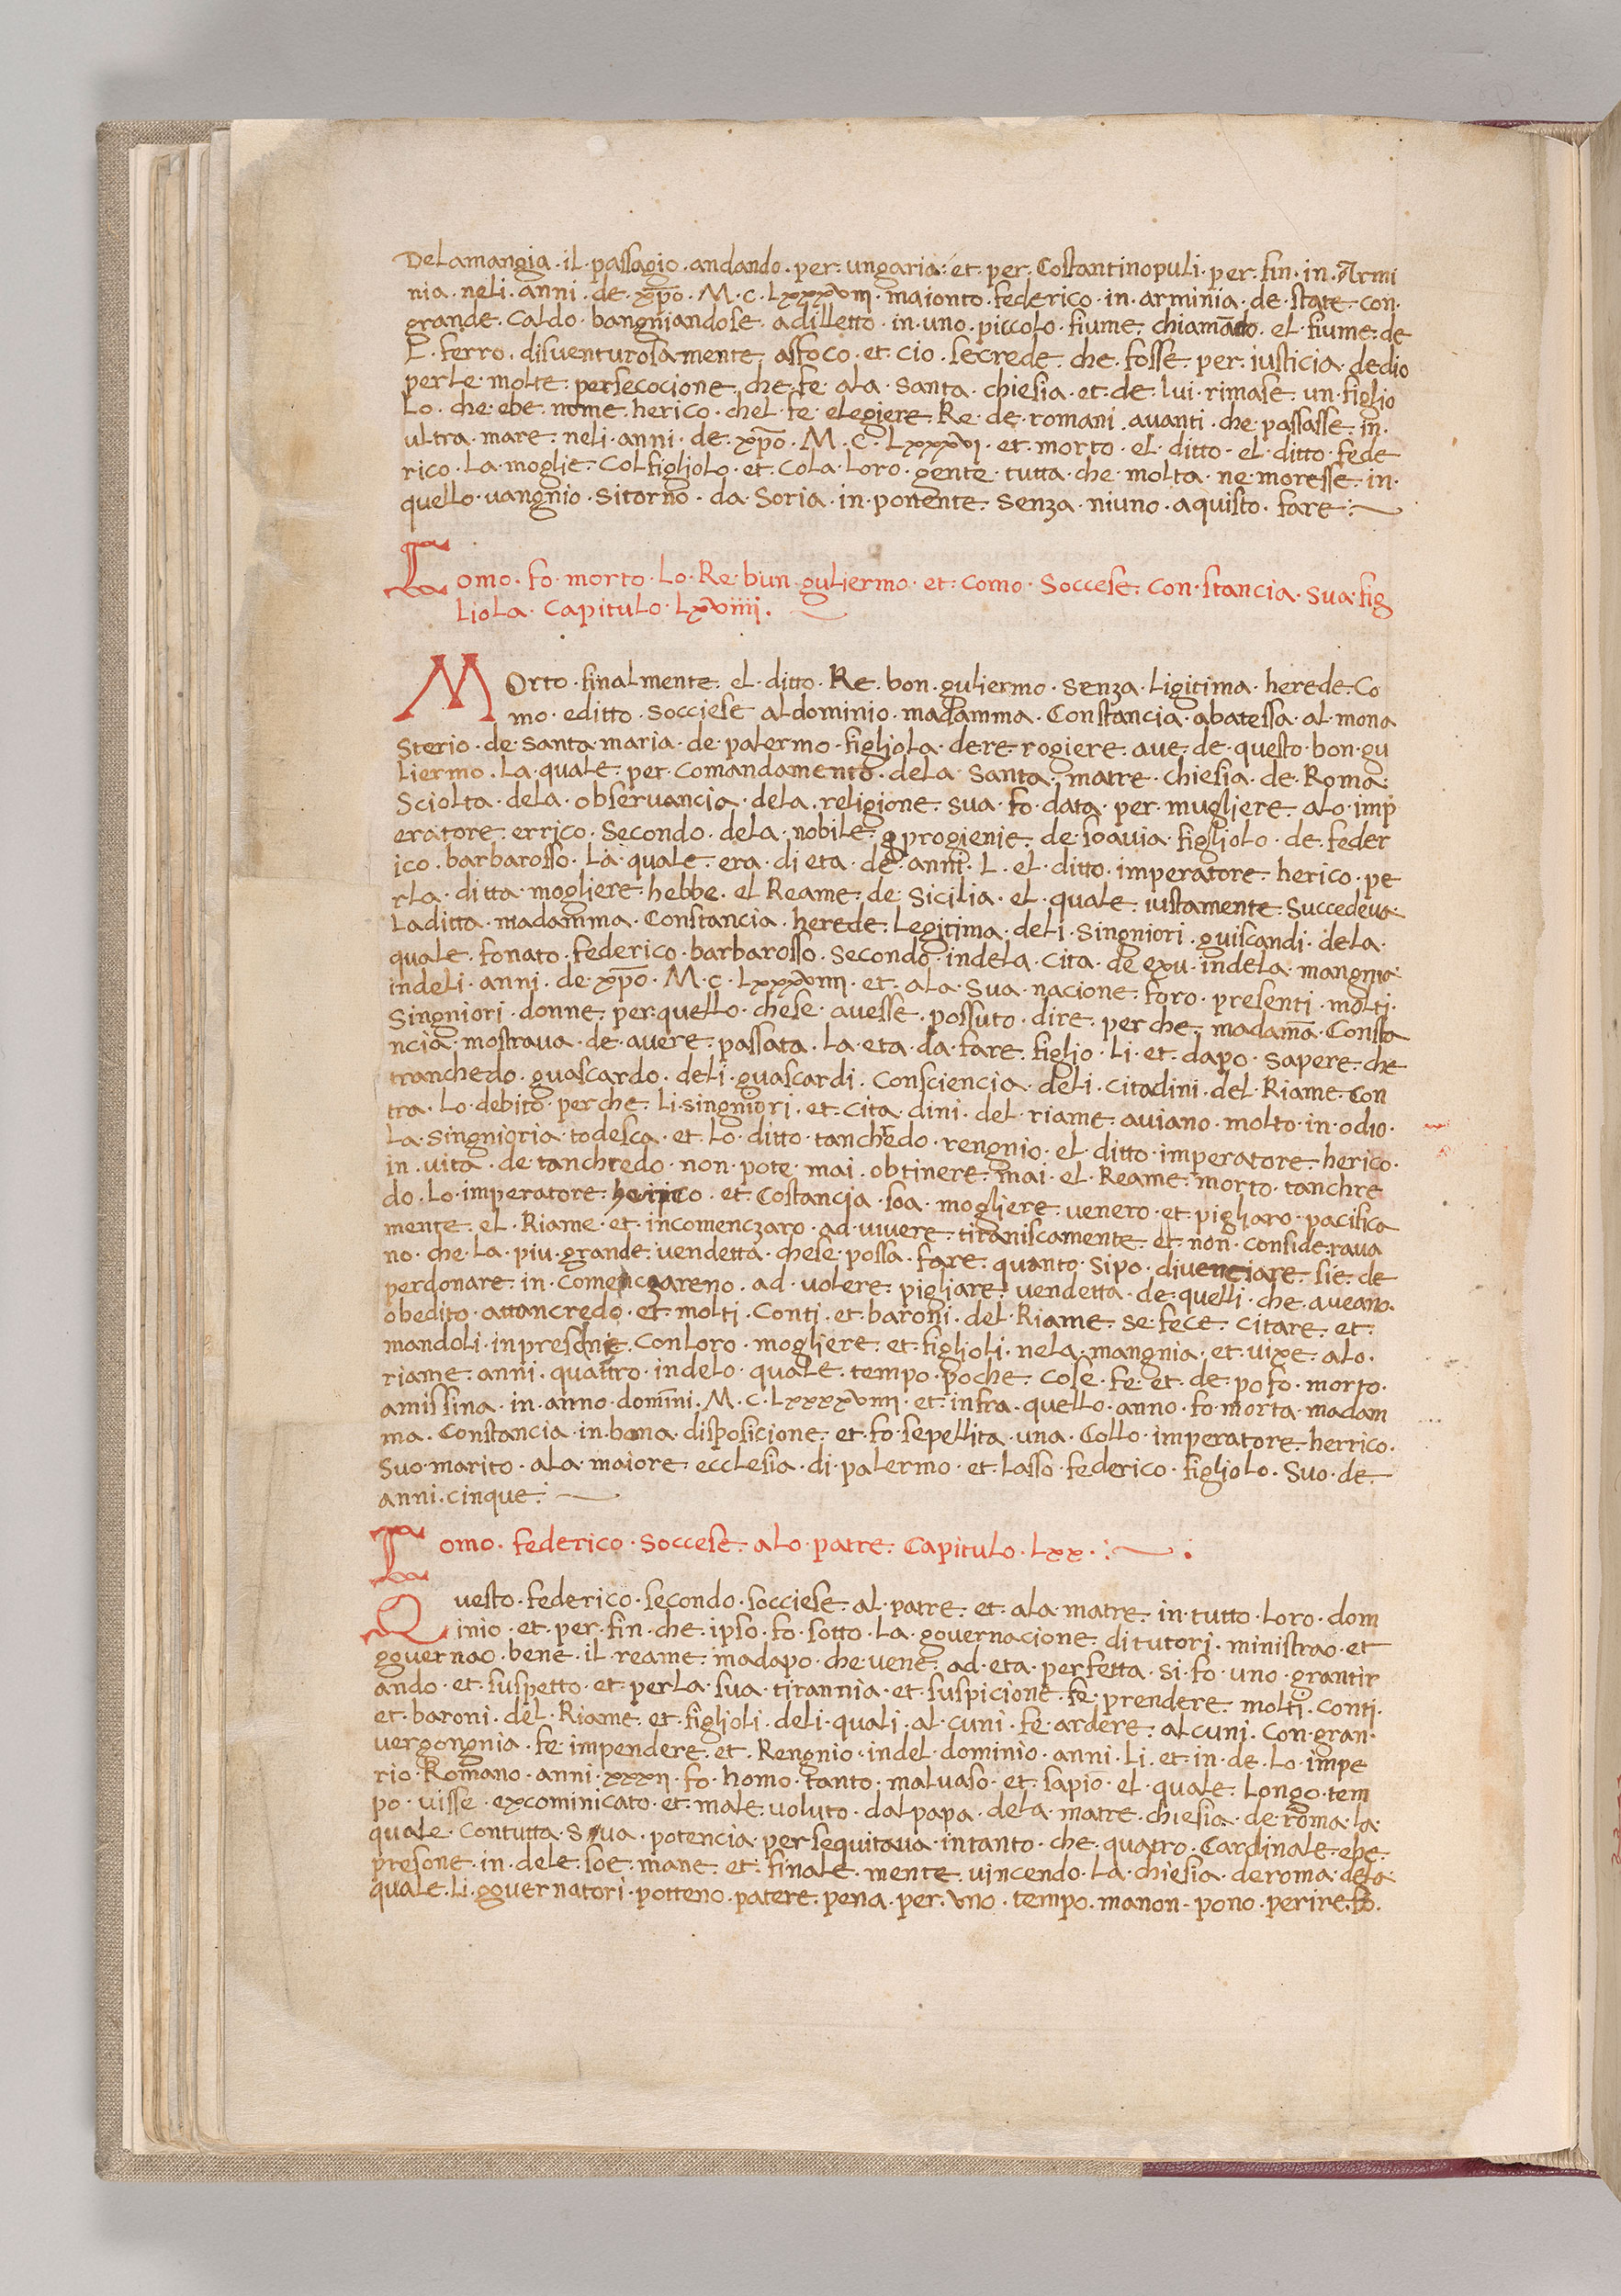 Delamangia · il · passagio · andando · per · ungaria · et · per · Costantinopuli · per · fin · in · Armi
nia · neli · anni · de · xp̄o · M · C · Lxxxviii · maionto · federico · in · arminia · de · state · con ·
grande · caldo · bangniandose · adilletto · in · uno · piccolo · fiume · chiamato · el · fiume · de
L · ferro · disventurosamente · asfoco · et · cio · secrede · che · fosse · per · iusticia · dedio
perle · molte · persecocione · che · fe · ala · santa · chiesia · et · de · lui · rimase · un · figlio
Lo · che · ebe · nome · herico · chel · fe · elegiere · Re · de · romani · avanti · che · passasse · in ·
ultra · mare · neli · anni · de · xp̄o · M · C · Lxxxvi · et · morto · el · ditto · el · ditto · fede
rico · La · moglie · Colfigliolo · et · Cola · Loro · gente · tutta · che · molta · ne · moresse · in ·
quello · vangnio · Sitorno · da · Soria · in · ponente · senza · niuno · aquisto · fare :
Como · fo · morto · Lo · Re · bun · guliermo · et · como · Soccese · Con · stancia · sua · fig
liola · Capitulo · Lxviiii ·
MOrto · finalmente · el · ditto · Re · bon · guliermo · senza · Ligitima · herede · Co
mo · editto · socciese · aldominio · madamma · Constancia · abatessa · al · mona
Sterio · de · santa · maria · de · palermo · figliola · dere · rogiere · ave · de · questo · bon · gu
liermo · La · quale · per · Comandamento · dela · Santa · matre · chiesia · de · Roma ·
Sciolta · dela · observancia · dela · religione · sua · fo · data · per · mugliere · alo · imp
eratore · errico · Secondo · dela · nobile · progienie · de · soavia · figliolo · de · feder
ico · barbarosso · La · quale · era · di eta · de · anni · L · el · ditto · imperatore · herico · pe
rla · ditta · mogliere · hebbe · el Reame · de · Sicilia · el · quale · iustamente · Succedeva
Laditta · madamma · Constancia · herede · Legitima · deli · Singniori · guiscandi · dela ·
quale · fonato · federico · barbarosso · Secondo · indela · cita · de exu · indela · mangnia
indeli · anni · de · xp̄o · M · C · Lxxxviiii · et · ala · sua · nacione · foro · presenti · molti ·
Singniori · donne · per · quello · chese · avesse · possuto · dire · per che · madamā · Consta
ncia · mostrava · de · avere · passata · La · eta · da · fare · figlio · Li · et · dapo · sapere · che
tranchedo · guascardo · deli · guascardi · Consciencia · deli · Citadini · del · Riame · Con
tra · Lo · debito · perche · Li · singniori · et · cita · dini · del · riame · aviano · molto · in · odio ·
La · singnioria · todesca · et · Lo · ditto · tanchredo · rengnio · el · ditto · imperatore · herico ·
in · vita · de · tanchredo · non · pote · mai · obtinere · mai · el · Reame · morto · tanchre
do · Lo · imperatore · herico · et · Costancia · soa · mogliere · venero · et · pigliaro · pacifica
mente · el · Riame · et · incomenczaro · ad · vivere · tiraniscamente · et · non · considerava
no · che · La · piu · grande · vendetta · chese · possa · fare · quanto · Sipo · divenciare · sie · de
perdonare · in · comenczareno · ad · volere · pigliare · vendetta · de · quelli · che · aveano ·
obedito · attancredo · et · molti · Conti · et · baroni · del · Riame · se · fece · citare · et ·
mandoli · inpresone · Conloro · mogliere · et · figlioli · nela · mangnia · et · vixe · alo ·
riame · anni · quattro · indelo · quale · tempo · poche · cose · fe · et · de · pofo · morto ·
amissina · in · anno · domīni · M · C · Lxxxxviiii · et · infra · quello · anno · fo · morta · madam
ma · Constancia · in · bona · disposicione · et · fo · sepellita · una · Collo · imperatore · herrico ·
Suo · marito · ala · maiore · ecclesia · di · palermo · et · Lasso · federico · figliolo · Suo · de
anni · cinque ·
Como · federico · Soccese · alo · patre · Capitulo · Lxx ·
Questo · federico · secondo · socciese · al · patre · et · ala · matre · in · tutto · Loro · dom
inio · et · per · fin · che · ipso · fo · sotto · La · governacione · di tutori · ministrao · et
governao · bene · il · reame · madapo · che · vene · ad · eta · perfetta · si · fo · uno · grantir
ando · et · suspetto · et · perla · sua · tirannia · et · suspicione · fe · prendere · molti · Conti ·
et · baroni · del · Riame · et · figlioli · deli · quali · al · cuni · fe · ardere · alcuni · Con · gran ·
vergongnia · fe · impendere · et · Rengnio · indel · dominio · anni · Li · et · in · de · Lo · impe
rio · Romano · anni · xxxii · fo · homo · tanto · malvaso · et · sapio · el · quale · Longo · tem
po · visse · excominicato · et · male · voluto · dalpapa · dela · matre · chiesia · de · roma · La
quale · Contutta · Sua · potencia · persequitava · intanto · che · quatro · Cardinale · ebe ·
presone · in · dele · soe · mane · et · finale · mente · vincendo · La · chiesia · deroma · dela
quale · Li · governatori · potteno · patere · pena · per · uno · tempo · manon · pono · perire · fo ·